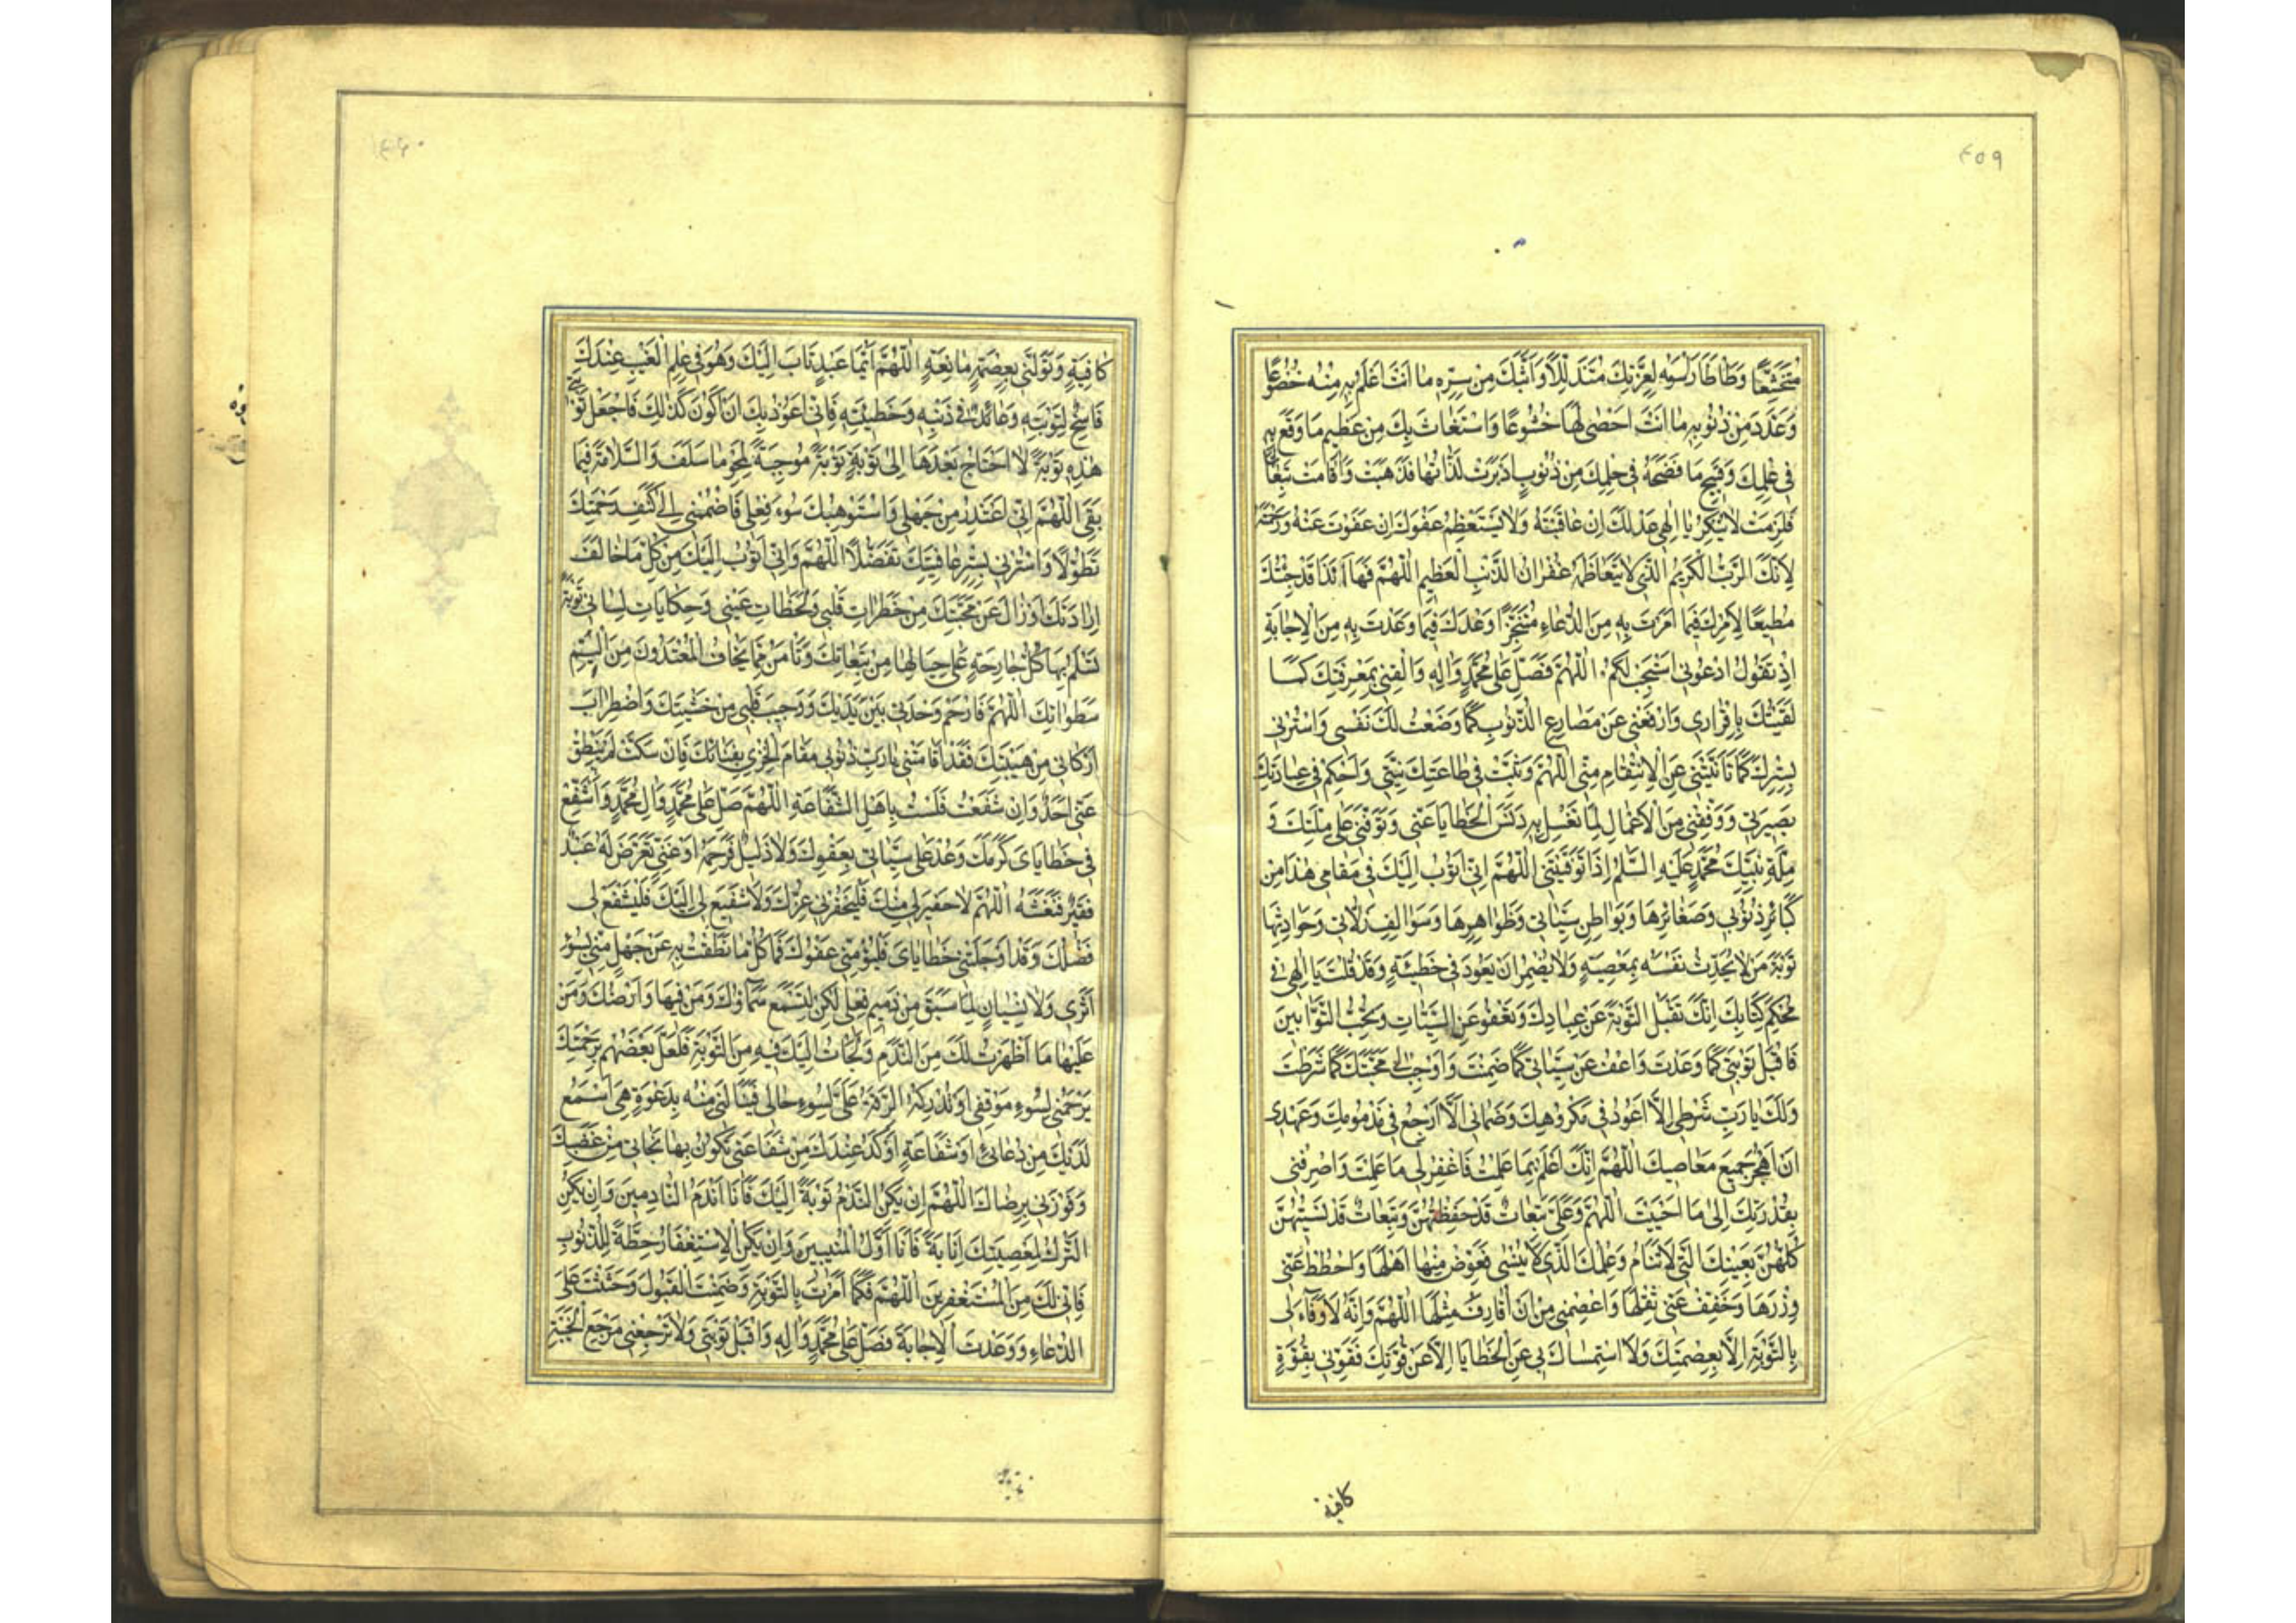 ٤٥٩
مُتَخَشِّعًا وَطَأْطَأَ رَأْسَهُ لِعِزَّتِكَ مُتَذَلِّلًا وَاَبَثَّكَ مِنْ سِرِّهِ مَا اَنْتَ اَعْلَمُ بِهِ مِنْهُ خُضُوعًا
وَعَدَّدَ مِنْ ذُنُوبِهِ مَا اَنْتَ اَحْصٰى لَهَا خُشُوعًا وَاسْتَغَاثَ بِكَ مِنْ عَظِيمِ مَا وَقَعَ بِهِ
فِي عِلْمِكَ وَقَبِيحِ مَا فَضَحَهُ فِي حُكْمِكَ مِنْ ذُنُوبٍ اَدْبَرَتْ لَذَّاتُهَا فَذَهَبَتْ وَاَقَامَتْ تَبِعَاتُهَا
فَلَزِمَتْ لَا يُنْكِرُ يَا اِلٰهِي عَدْلَكَ اِنْ عَاقَبْتَهُ وَلَا يَسْتَعْظِمُ عَفْوَكَ اِنْ عَفَوْتَ عَنْهُ وَرَحِمْتَهُ
لِاَنَّكَ الرَّبُّ الْكَرِيمُ الَّذِي لَا يَتَعَاظَمُهُ غُفْرَانُ الذَّنْبِ الْعَظِيمِ اَللّٰهُمَّ فَهَا اَنَا ذَا قَدْ جِئْتُكَ
مُطِيعًا لِاَمْرِكَ فِيمَا اَمَرْتَ بِهِ مِنَ الدُّعَاءِ مُتَنَجِّزًا وَعْدَكَ فِيمَا وَعَدْتَ بِهِ مِنَ الْاِجَابَةِ
اِذْ تَقُولُ ادْعُونِي اَسْتَجِبْ لَكُمْ. اَللّٰهُمَّ فَصَلِّ عَلٰى مُحَمَّدٍ وَاٰلِهِ وَالْقَنِي بِمَغْفِرَتِكَ كَمَا
لَقِيتُكَ بِاِقْرَارِي وَارْفَعْنِي عَنْ مَصَارِعِ الذُّنُوبِ كَمَا وَضَعْتُ لَكَ نَفْسِي وَاسْتُرْنِي
بِسِتْرِكَ كَمَا تَاَنَّيْتَنِي عَنِ الْاِنْتِقَامِ مِنِّي اَللّٰهُمَّ وَثَبِّتْ فِي طَاعَتِكَ نِيَّتِي وَاَحْكِمْ فِي عِبَادَتِكَ
بَصِيرَتِي وَوَفِّقْنِي مِنَ الْاَعْمَالِ لِمَا تَغْسِلُ بِهِ دَنَسَ الْخَطَايَا عَنِّي وَتَوَفَّنِي عَلٰى مِلَّتِكَ وَ
مِلَّةِ نَبِيِّكَ مُحَمَّدٍ عَلَيْهِ السَّلٰمُ اِذَا تَوَفَّيْتَنِي اَللّٰهُمَّ اِنِّي اَتُوبُ اِلَيْكَ فِي مَقَامِي هٰذَا مِنْ
كَبَائِرِ ذُنُوبِي وَصَغَائِرِهَا وَبَوَاطِنِ سَيِّئَاتِي وَظَوَاهِرِهَا وَسَوَالِفِ زَلَّاتِي وَحَوَادِثِهَا
تَوْبَةَ مَنْ لَا يُحَدِّثُ نَفْسَهُ بِمَعْصِيَةٍ وَلَا يُضْمِرُ اَنْ يَعُودَ فِي خَطِيئَةٍ وَقَدْ قُلْتَ يَا اِلٰهِي فِي
مُحْكَمِ كِتَابِكَ اِنَّكَ تَقْبَلُ التَّوْبَةَ عَنْ عِبَادِكَ وَتَعْفُو عَنِ السَّيِّئَاتِ وَتُحِبُّ التَّوَّابِينَ
فَاقْبَلْ تَوْبَتِي كَمَا وَعَدْتَ وَاعْفُ عَنْ سَيِّئَاتِي كَمَا ضَمِنْتَ وَاَوْجِبْ لِي مَحَبَّتَكَ كَمَا شَرَطْتَ
وَلَكَ يَا رَبِّ شَرْطِي اِلَّا اَعُودَ فِي مَكْرُوهِكَ وَضَمَانِي اَلَّا اَرْجِعَ فِي مَذْمُومِكَ وَعَهْدِي
اَنْ اَهْجُرَ جَمِيعَ مَعَاصِيكَ اَللّٰهُمَّ اِنَّكَ اَعْلَمُ بِمَا عَمِلْتُ فَاغْفِرْ لِي مَا عَلِمْتَ وَاصْرِفْنِي
بِقُدْرَتِكَ اِلٰى مَا اَحْبَبْتَ اَللّٰهُمَّ وَعَلَيَّ تَبِعَاتٌ قَدْ حَفِظْتُهُنَّ وَتَبِعَاتٌ قَدْ نَسِيتُهُنَّ
كُلُّهُنَّ بِعَيْنِكَ الَّتِي لَا تَنَامُ وَعِلْمِكَ الَّذِي لَا يَنْسٰى فَعَوِّضْ مِنْهَا اَهْلَهَا وَاحْطُطْ عَنِّي
وِزْرَهَا وَخَفِّفْ عَنِّي ثِقْلَهَا وَاعْصِمْنِي مِنْ اَنْ اُقَارِفَ مِثْلَهَا اَللّٰهُمَّ وَاِنَّهُ لَا وَفَاءَ لِي
بِالتَّوْبَةِ اِلَّا بِعِصْمَتِكَ وَلَا اسْتِمْسَاكَ بِي عَنِ الْخَطَايَا اِلَّا عَنْ قُوَّتِكَ فَقَوِّنِي بِقُوَّةٍ
كافية
٤٦٠
كَافِيَةٍ وَتَوَلَّنِي بِعِصْمَةٍ مَانِعَةٍ اَللّٰهُمَّ اَيُّمَا عَبْدٍ تَابَ اِلَيْكَ وَهُوَ فِي عِلْمِ الْغَيْبِ عِنْدَكَ
فَاسِخٌ لِتَوْبَتِهِ وَعَائِدٌ فِي ذَنْبِهِ وَخَطِيئَتِهِ فَاِنِّي اَعُوذُ بِكَ اَنْ اَكُونَ كَذٰلِكَ فَاجْعَلْ تَوْبَتِي
هٰذِهِ تَوْبَةً لَا اَحْتَاجُ بَعْدَهَا اِلٰى تَوْبَةٍ تَوْبَةً مُوجِبَةً لِمَحْوِ مَا سَلَفَ وَالسَّلَامَةَ فِيمَا
بَقِيَ اَللّٰهُمَّ اِنِّي اَعْتَذِرُ مِنْ جَهْلِي وَاَسْتَوْهِبُكَ سُوءَ فِعْلِي فَاضْمُمْنِي اِلٰى كَنَفِ رَحْمَتِكَ
تَطَوُّلًا وَاسْتُرْنِي بِسِتْرِ عَافِيَتِكَ تَفَضُّلًا اَللّٰهُمَّ وَاِنِّي اَتُوبُ اِلَيْكَ مِنْ كُلِّ مَا خَالَفَ
اِرَادَتَكَ اَوْ زَالَ عَنْ مَحَبَّتِكَ مِنْ خَطَرَاتِ قَلْبِي وَلَحَظَاتِ عَيْنِي وَحِكَايَاتِ لِسَانِي تَوْبَةً
تَسْلَمُ بِهَا كُلُّ جَارِحَةٍ عَلٰى حِيَالِهَا مِنْ تَبِعَاتِكَ وَتَأْمَنُ مِمَّا يَخَافُ الْمُعْتَدُونَ مِنْ اَلِيمِ
سَطَوَاتِكَ اَللّٰهُمَّ فَارْحَمْ وَحْدَتِي بَيْنَ يَدَيْكَ وَوَجِيبَ قَلْبِي مِنْ خَشْيَتِكَ وَاضْطِرَابَ
اَرْكَانِي مِنْ هَيْبَتِكَ فَقَدْ اَقَامَتْنِي يَا رَبِّ ذُنُوبِي مَقَامَ الْخِزْيِ بِفِنَائِكَ فَاِنْ سَكَتُّ لَمْ يَنْطِقْ
عَنِّي اَحَدٌ وَاِنْ شَفَعْتُ فَلَسْتُ بِاَهْلِ الشَّفَاعَةِ اَللّٰهُمَّ صَلِّ عَلٰى مُحَمَّدٍ وَاٰلِ مُحَمَّدٍ وَاشْفَعْ
فِي خَطَايَايَ كَرَمَكَ وَعُدْ عَلٰى سَيِّئَاتِي بِعَفْوِكَ وَلَا ذَلِيلٌ فَرَحِمَهُ اَوْ غَنِيٍّ تَعَرَّضَ لَهُ عَبْدٌ
فَقِيرٌ فَنَعَشَهُ اَللّٰهُمَّ لَا خَفِيرَ لِي مِنْكَ فَلْيَخْفُرْنِي عِزُّكَ وَلَا شَفِيعَ لِي اِلَيْكَ فَلْيَشْفَعْ لِي
فَضْلُكَ وَقَدْ اَوْجَلَتْنِي خَطَايَايَ فَلْيُؤْمِنِّي عَفْوُكَ فَمَا كُلُّ مَا نَطَقْتُ بِهِ عَنْ جَهْلٍ مِنِّي بِسُوءِ
اَثَرِي وَلَا نِسْيَانٍ لِمَا سَبَقَ مِنْ ذَمِيمِ فِعْلِي لٰكِنْ لِتَسْمَعَ سَمَاؤُكَ وَمَنْ فِيهَا وَاَرْضُكَ وَمَنْ
عَلَيْهَا مَا اَظْهَرْتُ لَكَ مِنَ النَّدَمِ وَلَجَأْتُ اِلَيْكَ فِيهِ مِنَ التَّوْبَةِ فَلَعَلَّ بَعْضَهُمْ بِرَحْمَتِكَ
يَرْحَمُنِي لِسُوءِ مَوْقِفِي اَوْ تُدْرِكُهُ الرِّقَّةُ عَلَيَّ لِسُوءِ حَالِي فَيَنَالَنِي مِنْهُ بِدَعْوَةٍ هِيَ اَسْمَعُ
لَدَيْكَ مِنْ دُعَائِي اَوْ شَفَاعَةٍ اَوْكَدُ عِنْدَكَ مِنْ شَفَاعَتِي تَكُونُ بِهَا نَجَاتِي مِنْ غَضَبِكَ
وَفَوْزَتِي بِرِضَاكَ اَللّٰهُمَّ اِنْ يَكُنِ النَّدَمُ تَوْبَةً اِلَيْكَ فَاَنَا اَنْدَمُ النَّادِمِينَ وَاِنْ يَكُنِ
التَّرْكُ لِمَعْصِيَتِكَ اِنَابَةً فَاَنَا اَوَّلُ الْمُنِيبِينَ وَاِنْ يَكُنِ الْاِسْتِغْفَارُ حِطَّةً لِلذُّنُوبِ
فَاِنِّي لَكَ مِنَ الْمُسْتَغْفِرِينَ اَللّٰهُمَّ فَكَمَا اَمَرْتَ بِالتَّوْبَةِ وَضَمِنْتَ الْقَبُولَ وَحَثَثْتَ عَلَى
الدُّعَاءِ وَوَعَدْتَ الْاِجَابَةَ فَصَلِّ عَلٰى مُحَمَّدٍ وَاٰلِهِ وَاقْبَلْ تَوْبَتِي وَلَا تَرْجِعْنِي مَرْجِعَ الْخَيْبَةِ